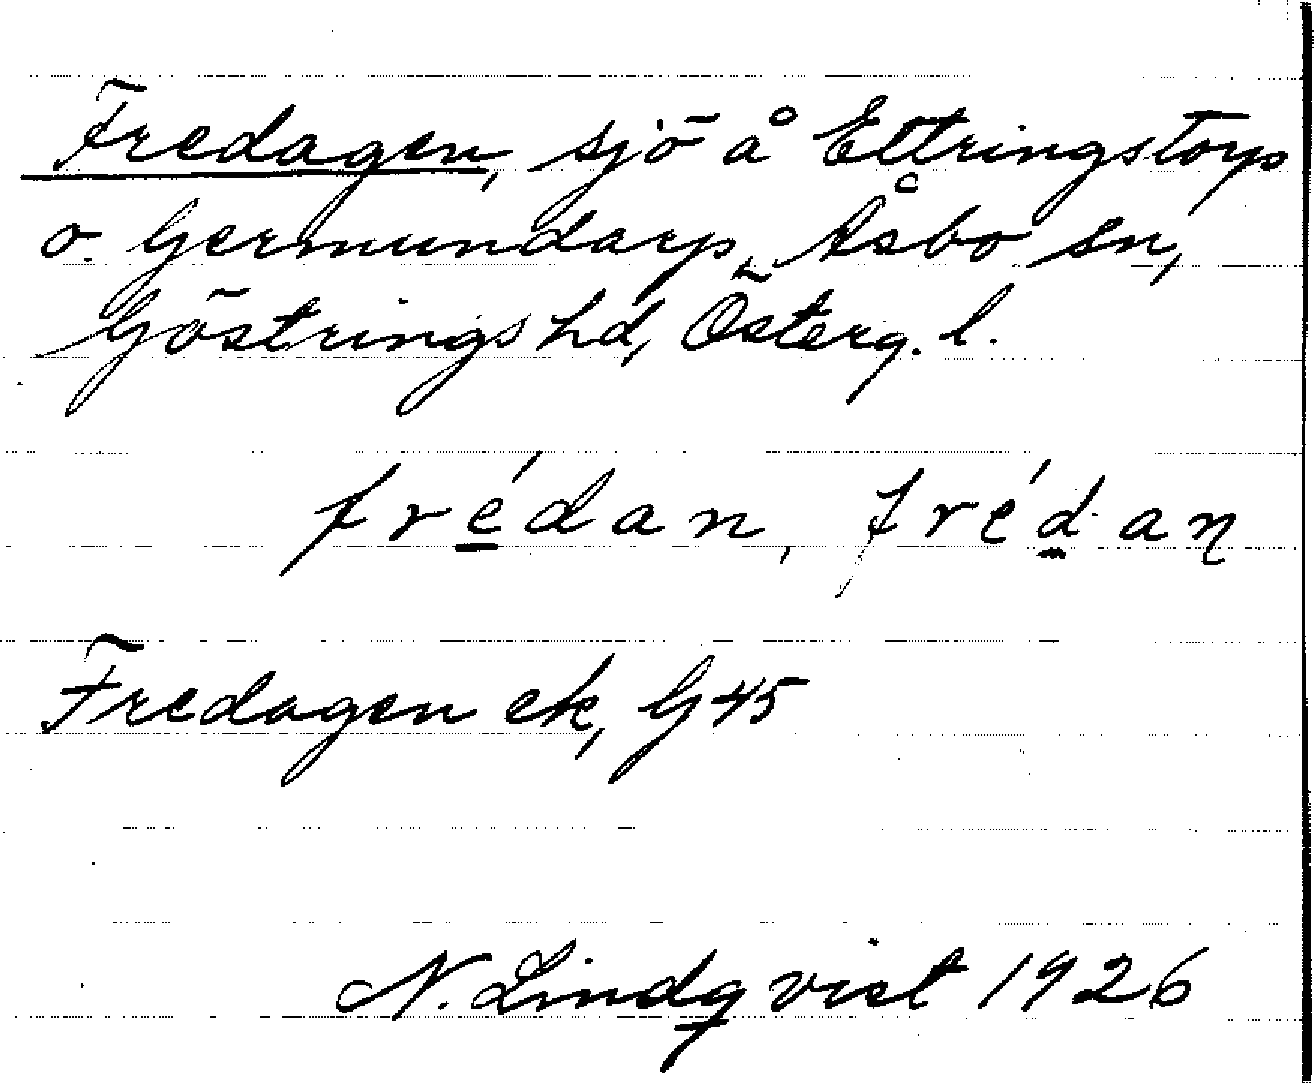 Fredagen, sjö å Ettringstorp
o. Germundarp, Åsbo sn,
Göstrings hd, Österg. l.
fré̲dan, fréd̰aꞃ
Fredagen ek, G 45
N. Lindqvist 1926